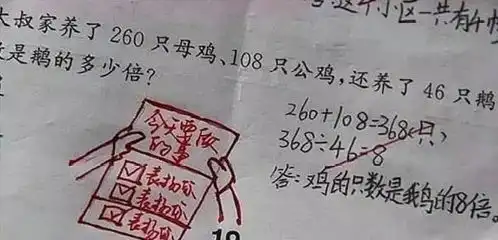 答这个小区一共有4
大叔家养了 260 只母鸡、108 只公鸡，还养了 46 只鹅
是鹅的多少倍？
260+108=368(只)
368÷46=8
答：鸡的只数是鹅的8倍。
今天要做
的事
表扬
表扬
表扬
10